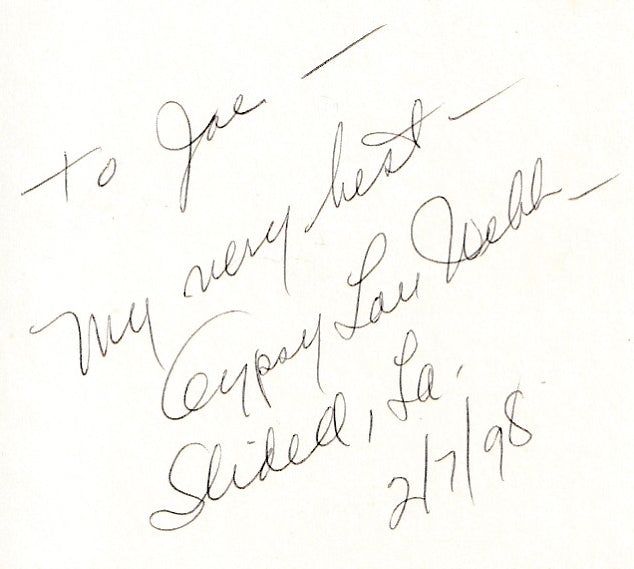 To Joe —
My very best —
Gypsy Lou Webb —
Slidell, La.
2/7/98